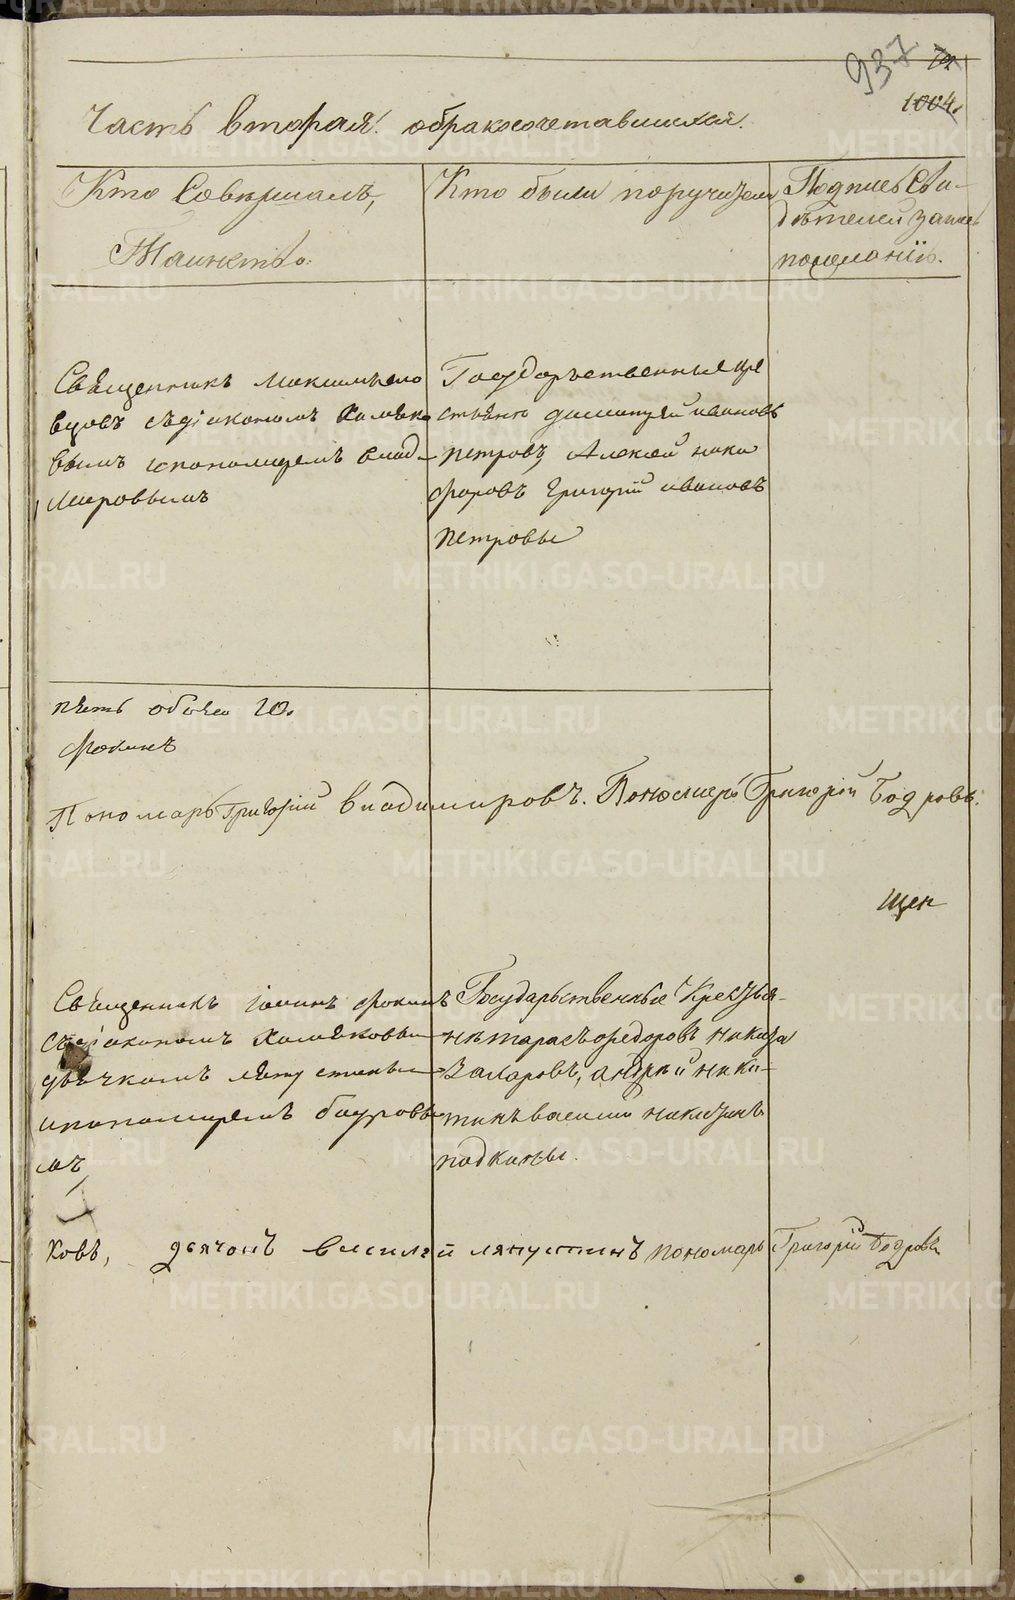 937
1004
Часть вторая. о бракосочетавшихся.
Кто Совершалъ
Таинство.
Кто были поручители
Подпись Сви-
дѣтелей записи
по желанію.
Священникъ
съ діакономъ Хомяко
вымъ и пономаремъ Влади-
мировымъ
Государственные кре
стьяне Димитрій Ивановъ
Петровъ, Алексей Ники
форовъ Григорій Ивановъ
Петровы
пять обоего 10.
Фокинъ
Пономарь Григорій Владимировъ. Пономарь Григорій Бодровъ.
щен
Священникъ Іоаннъ Фокинъ
съ діакономъ Хомяковым
дьячкомъ
и пономаремъ Бодровы
мъ
Государственные Крестья-
не Тарасъ Федоровъ Никита
Захаровъ, Андрей Ники-
тинъ Василий Никитинъ
ковъ, дьячокъ Василей Ляпустинъ пономарь Григорій Бодровъ
METRIKI.GASO-URAL.RU